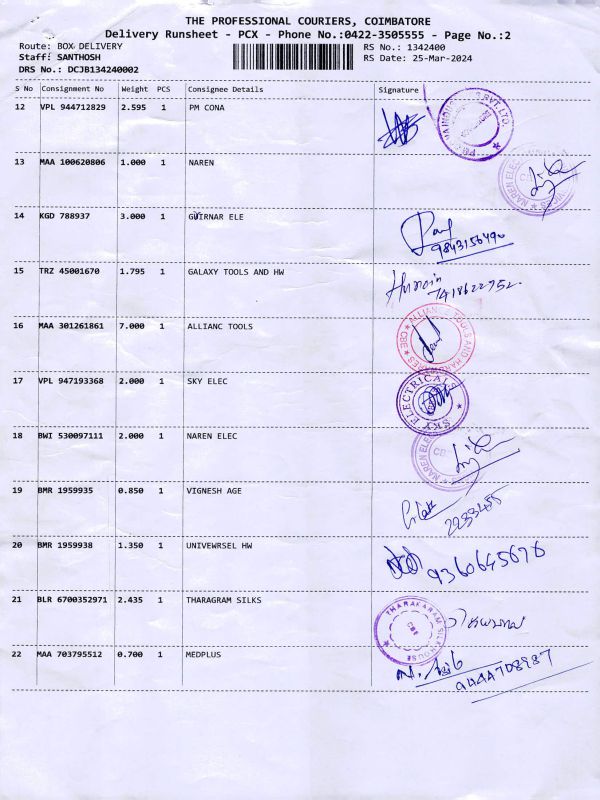 THE PROFESSIONAL COURIERS, COIMBATORE
Delivery Runsheet - PCX - Phone No.:0422-3505555 - Page No.:2
Route: BOX DELIVERY RS No.: 1342400
Staff: SANTHOSH RS Date: 25-Mar-2024
DRS No.: DCJB134240002
S No Consignment No Weight PCS Consignee Details Signature
12 VPL 944712829 2.595 1 PM CONA
PVT.LTD.
13 MAA 100620806 1.000 1 NAREN
NAREN ELEC
14 KGD 788937 3.000 1 GUIRNAR ELE
9843156490
15 TRZ 45001670 1.795 1 GALAXY TOOLS AND HW
7418622752
16 MAA 301261861 7.000 1 ALLIANC TOOLS
TOOLS AND HARDWARES CBE
17 VPL 947193368 2.000 1 SKY ELEC
SKY ELECTRICALS
18 BWI 530097111 2.000 1 NAREN ELEC
NAREN ELEC
19 BMR 1959935 0.850 1 VIGNESH AGE
2233455
20 BMR 1959938 1.350 1 UNIVEWRSEL HW
9360645676
21 BLR 6700352971 2.435 1 THARAGRAM SILKS
THARAKARAM SILK HOUSE
22 MAA 703795512 0.700 1 MEDPLUS
9444708987